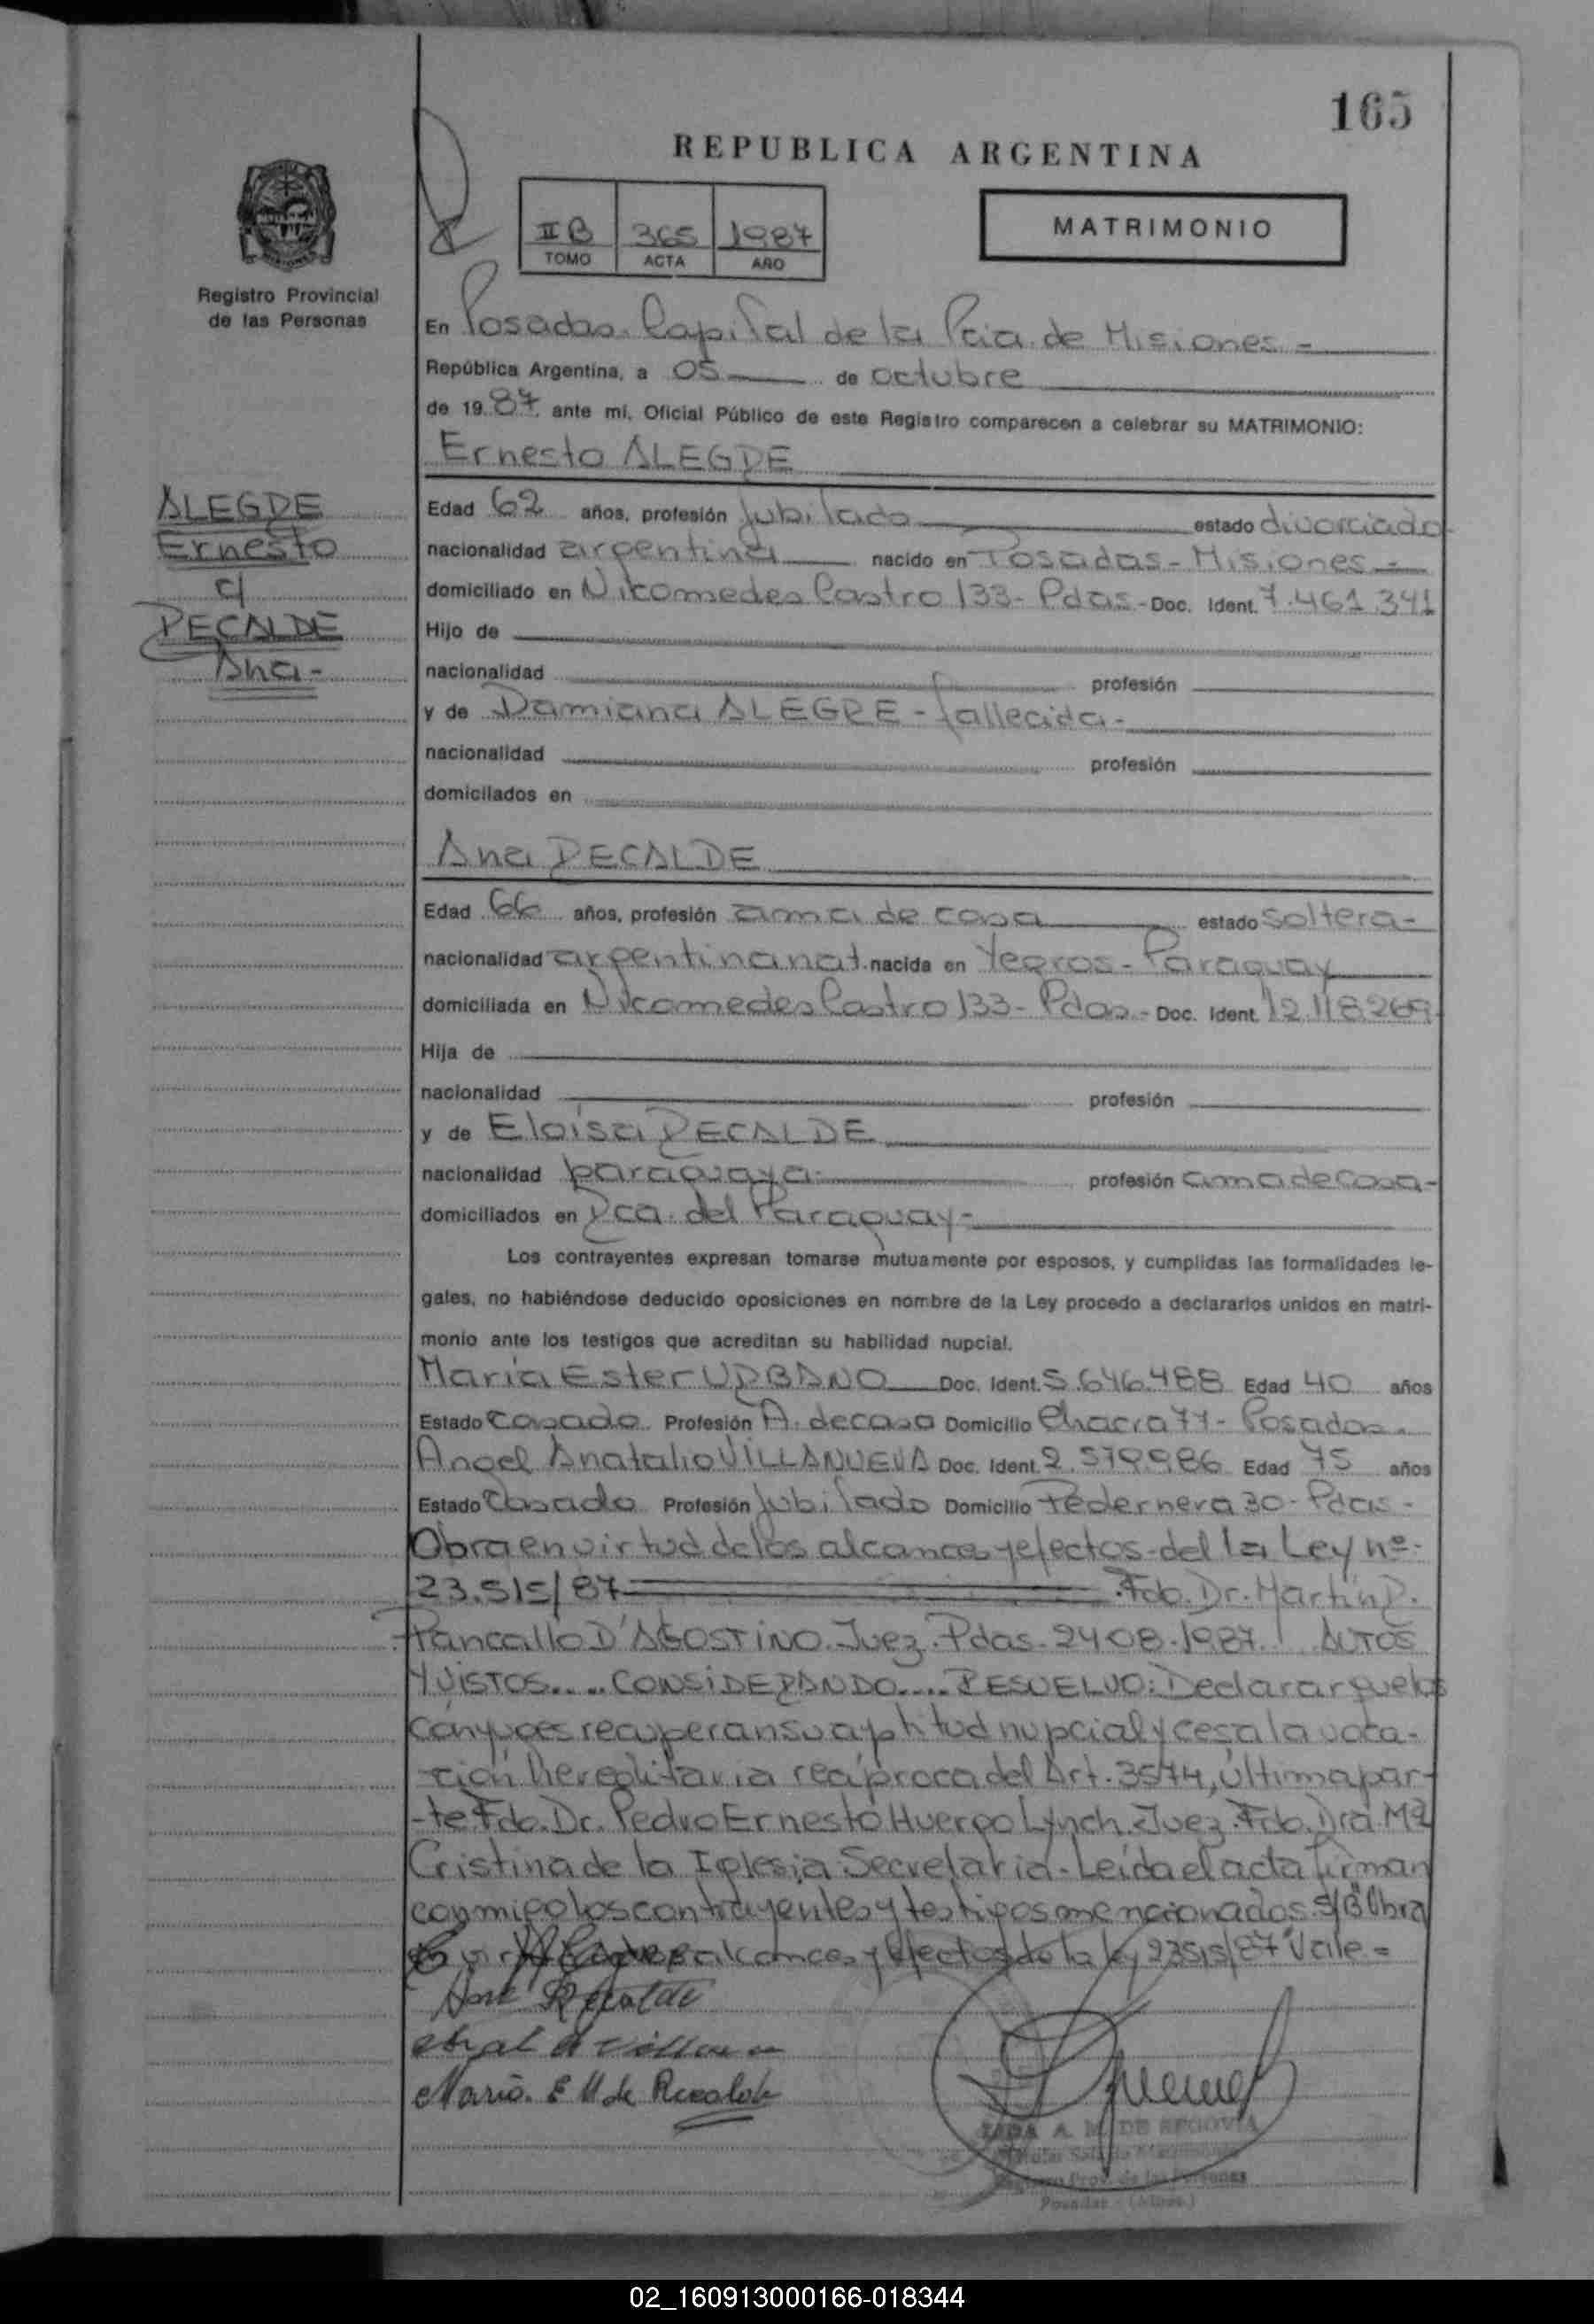 165
REPUBLICA ARGENTINA
II B 365 1987
TOMO ACTA AÑO
MATRIMONIO
Registro Provincial
de las Personas
En Posadas. Capital de la Pcia. de Misiones -
República Argentina, a 05 de octubre
de 1987 ante mí, Oficial Público de este Registro comparecen a celebrar su MATRIMONIO:
Ernesto ALEGRE
ALEGRE
Ernesto
c/
RECALDE
Ana-
Edad 62 años, profesión jubilado estado divorciado
nacionalidad argentina nacido en Posadas - Misiones -
domiciliado en Nicomedes Castro 133- Pdas- Doc. Ident. 7.461.341
Hijo de
nacionalidad profesión
y de Damiana ALEGRE - fallecida-
nacionalidad profesión
domiciliados en
Ana RECALDE
Edad 66 años, profesión ama de casa estado soltera-
nacionalidad argentina nat. nacida en Yegros - Paraguay
domiciliada en Nicomedes Castro 133- Pdas- Doc. Ident. 12.118.269-
Hija de
nacionalidad profesión
y de Eloisa RECALDE
nacionalidad paraguaya- profesión ama de casa-
domiciliados en Rca. del Paraguay-
Los contrayentes expresan tomarse mutuamente por esposos, y cumplidas las formalidades le-
gales, no habiéndose deducido oposiciones en nombre de la Ley procedo a declararlos unidos en matri-
monio ante los testigos que acreditan su habilidad nupcial.
María Ester URBANO Doc. Ident. 5.646.488 Edad 40 años
Estado Casado Profesión A. de casa Domicilio Chacra 77- Posadas.
Angel Anatalio VILLANUEVA Doc. Ident. 2.579.986 Edad 75 años
Estado Casado Profesión jubilado Domicilio Pedernera 30- Pdas-
Obra en virtud de los alcances y efectos del la Ley nº-
23.515/87 Fdo. Dr. Martín R.
Pancallo D'AGOSTINO. Juez. Pdas. 24.08.1987. AUTOS
Y VISTOS.... CONSIDERANDO.... RESUELVO: Declarar que los
cónyuges recuperan su aptitud nupcial y cesa la voca-
ción hereditaria recíproca del Art. 3574, última par-
-te Fdo. Dr. Pedro Ernesto Huergo Lynch. Juez. Fdo. Dra. Mª
Cristina de la Iglesia Secretaria- Leída el acta firman
conmigo los contrayentes y testigos mencionados. S/B Obra
alcances y efectos de la ley 23515/87 Vale =
Recalde
Maria. E U de Recalde
A. M. DE SEGOVIA
Prov. de las Personas
Posadas - (Mnes.)
02_160913000166-018344